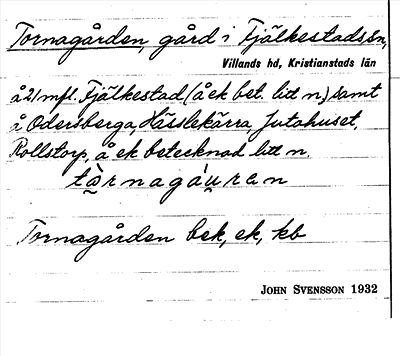 Tornagården, gård i Fjälkestads sn,
Villands hd, Kristianstads län
å 21 mfl. Fjälkestad (å ek bet. litt n) samt
å Odersberga, Hässlekärra, Jutahuset,
Rollstorp, å ek betecknad litt n.
tà̤rnagáu̯ren
Tornagården bek, ek, kb
JOHN SVENSSON 1932